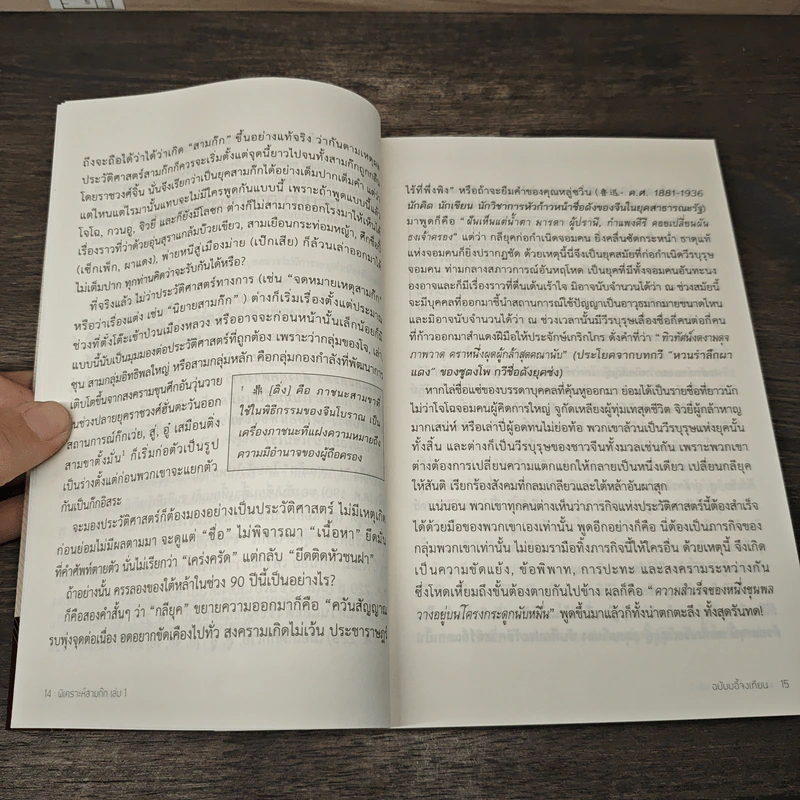 ถึงจะถือได้ว่าได้ว่าเกิด “สามก๊ก” ขึ้นอย่างแท้จริง ว่ากันตามเหตุผล
ประวัติศาสตร์สามก๊กก็ควรจะเริ่มตั้งแต่จุดนี้ยาวไปจนทั้งสามก๊กถูกกลืน
โดยราชวงศ์จิ้น นั่นจึงเรียกว่าเป็นยุคสามก๊กได้อย่างเต็มปากเต็มคำ แต่ว่า
แต่ไหนแต่ไรมานั้นแทบจะไม่มีใครพูดกันแบบนี้ เพราะถ้าพูดแบบนี้แล้ว
โจโฉ, กวนอู, จิวยี่ และก็ยังมีโลซก ต่างก็ไม่สามารถออกโรงมาให้เห็นได้
เรื่องราวที่ว่าด้วยอุ่นสุราแกล้มบ๊วยเขียว, สามเยือนกระท่อมหญ้า, ศึกเซ็กเพ็ก
(เซ็กเพ็ก, ผาแดง), พ่ายหนีสู่เมืองม่าย (เป๊กเสีย) ก็ล้วนเล่าออกมาได้
ไม่เต็มปาก ทุกท่านคิดว่าจะรับกันได้หรือ?
ที่จริงแล้ว ไม่ว่าประวัติศาสตร์ทางการ (เช่น “จดหมายเหตุสามก๊ก”)
หรือว่าเรื่องแต่ง (เช่น “นิยายสามก๊ก” ) ต่างก็เริ่มเรื่องตั้งแต่ประมาณ
ช่วงที่ตั๋งโต๊ะเข้าป่วนเมืองหลวง หรืออาจจะก่อนหน้านั้นเล็กน้อยก็มี
แบบนี้นับเป็นมุมมองต่อประวัติศาสตร์ที่ถูกต้อง เพราะว่ากลุ่มของโจโฉ, เล่าปี่
ซุน สามกลุ่มอิทธิพลใหญ่ หรือสามกลุ่มหลัก คือกลุ่มกองกำลังที่พัฒนาการ
เติบโตขึ้นจากสงครามขุนศึกอันวุ่นวาย
ในช่วงปลายยุคราชวงศ์ฮั่นตะวันออก
สถานการณ์ก๊กเว่ย, สู่, อู๋ เสมือนติ่ง
สามขาตั้งมั่น¹ ก็เริ่มก่อตัวเป็นรูป
เป็นร่างตั้งแต่ก่อนพวกเขาจะแยกตัว
กันเป็นก๊กอิสระ
¹ 鼎 [ติ่ง] คือ ภาชนะสามขาที่
ใช้ในพิธีกรรมของจีนโบราณ เป็น
เครื่องภาชนะที่แฝงความหมายถึง
ความมีอำนาจของผู้ถือครอง
จะมองประวัติศาสตร์ก็ต้องมองอย่างเป็นประวัติศาสตร์ ไม่มีเหตุเกิด
ก่อนย่อมไม่มีผลตามมา จะดูแต่ “ชื่อ” ไม่พิจารณา “เนื้อหา” ยึดมั่น
ที่คำศัพท์ตายตัว นั่นไม่เรียกว่า “เคร่งครัด” แต่กลับ “ยึดติดหัวชนฝา”
ถ้าอย่างนั้น ครรลองของใต้หล้าในช่วง 90 ปีนี้เป็นอย่างไร?
ก็คือสองคำสั้นๆ ว่า “กลียุค” ขยายความออกมาก็คือ “ควันสัญญาณ
รบพุ่งจุดต่อเนื่อง อดอยากขัดเคืองไปทั่ว สงครามเกิดไม่เว้น ประชาราษฎร์
14 : พิเคราะห์สามก๊ก เล่ม 1
ไร้ที่พึ่งพิง” หรือถ้าจะยืมคำของคุณหลู่ซวิ่น (鲁迅- ค.ศ. 1881-1936
นักคิด นักเขียน นักวิชาการหัวก้าวหน้าชื่อดังของจีนในยุคสาธารณะรัฐ)
มาพูดก็คือ “ฝันเห็นแต่น้ำตา มารดา ผู้ปรานี, กำแพงศิรี คอยเปลี่ยนผัน
ธงเจ้าครอง” แต่ว่า กลียุคก่อกำเนิดจอมคน ยิ่งคลื่นซัดกระหน่ำ ธาตุแท้
แห่งจอมคนก็ยิ่งปรากฏชัด ด้วยเหตุนี้นี่จึงเป็นยุคสมัยที่ก่อกำเนิดวีรบุรุษ
จอมคน ท่ามกลางสภาวการณ์อันหฤโหด เป็นยุคที่มีทั้งจอมคนอันทะนง
องอาจและก็มีเรื่องราวที่ตื่นเต้นเร้าใจ มิอาจนับจำนวนได้ว่า ณ ช่วงสมัยนี้
จะมีบุคคลที่ออกมาชี้นำสถานการณ์ใช้ปัญญาเป็นอาวุธมากมายขนาดไหน
และมิอาจนับจำนวนได้ว่า ณ ช่วงเวลานั้นมีวีรบุรุษเลื่องชื่อกี่คนต่อกี่คน
ที่ก้าวออกมาสำแดงฝีมือให้ประจักษ์เกริกไกร ดังคำที่ว่า “ทิวทัศน์งดงามดุจ
ภาพวาด คราหนึ่งผุดผู้กล้าสุดคณานับ” (ประโยคจากบทกวี “หวนรำลึกผา
แดง” ของซูตงโพ กวีชื่อดังยุคซ่ง)
หากไล่ชื่อแซ่ของบรรดาบุคคลที่คุ้นหูออกมา ย่อมได้เป็นรายชื่อที่ยาวนัก
ไม่ว่าโจโฉจอมคนผู้คิดการใหญ่ จูกัดเหลียงผู้ทุ่มเทสุดชีวิต จิวยี่ผู้กล้าหาญ
มากเสน่ห์ หรือเล่าปี่ผู้อดทนไม่ย่อท้อ พวกเขาล้วนเป็นวีรบุรุษแห่งยุคนั้น
ทั้งสิ้น และต่างก็เป็นวีรบุรุษของชาวจีนทั้งมวลเช่นกัน เพราะพวกเขา
ต่างต้องการเปลี่ยนความแตกแยกให้กลายเป็นหนึ่งเดียว เปลี่ยนกลียุค
ให้สันติ เรียกร้องสังคมที่กลมเกลียวและใต้หล้าอันผาสุก
แน่นอน พวกเขาทุกคนต่างเห็นว่าภารกิจแห่งประวัติศาสตร์นี้ต้องสำเร็จ
ได้ด้วยมือของพวกเขาเองเท่านั้น พูดอีกอย่างก็คือ นี่ต้องเป็นภารกิจของ
กลุ่มพวกเขาเท่านั้น ไม่ยอมรามือทิ้งภารกิจนี้ให้ใครอื่น ด้วยเหตุนี้ จึงเกิด
เป็นความขัดแย้ง, ข้อพิพาท, การปะทะ และสงครามระหว่างกัน
ซึ่งโหดเหี้ยมถึงขั้นต้องตายกันไปข้าง ผลก็คือ “ความสำเร็จของหนึ่งขุนพล
วางอยู่บนโครงกระดูกนับหมื่น” พูดขึ้นมาแล้วก็ทั้งน่าตกตะลึง ทั้งสุดรันทด!
ฉบับยอี้จงเทียน 15